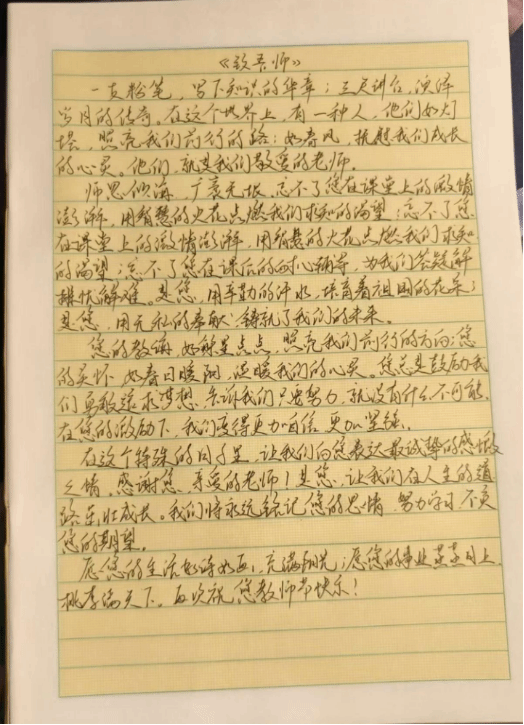 《致吾师》
一支粉笔，写下知识的华章；三尺讲台，演绎
岁月的传奇。在这个世界上，有一种人，他们如灯
塔，照亮我们前行的路；如春风，抚慰我们成长
的心灵。他们，就是我们敬爱的老师。
师恩似海，广袤无垠。忘不了您在课堂上的激情
澎湃，用智慧的火花点燃我们求知的渴望；忘不了您
在课堂上的激情澎湃，用智慧的火花点燃我们求知
的渴望；忘不了您在课后的耐心辅导，为我们答疑解
惑忧解难。是您，用辛勤的汗水，培育着祖国的花朵；
是您，用无私的奉献，铸就了我们的未来。
您的教诲，如繁星点点，照亮我们前行的方向；您
的关怀，如春日暖阳，温暖我们的心灵。您总是鼓励我
们勇敢追求梦想，告诉我们只要努力，就没有什么不可能。
在您的激励下，我们变得更加自信，更加坚强。
在这个特殊的日子里，让我们向您表达最诚挚的感激
之情。感谢您，亲爱的老师！是您，让我们在人生的道
路茁壮成长。我们将永远铭记您的恩情，努力学习，不负
您的期望。
愿您的生活如诗如画，充满阳光；愿您的事业蒸蒸日上，
桃李满天下。再次祝您教师节快乐！